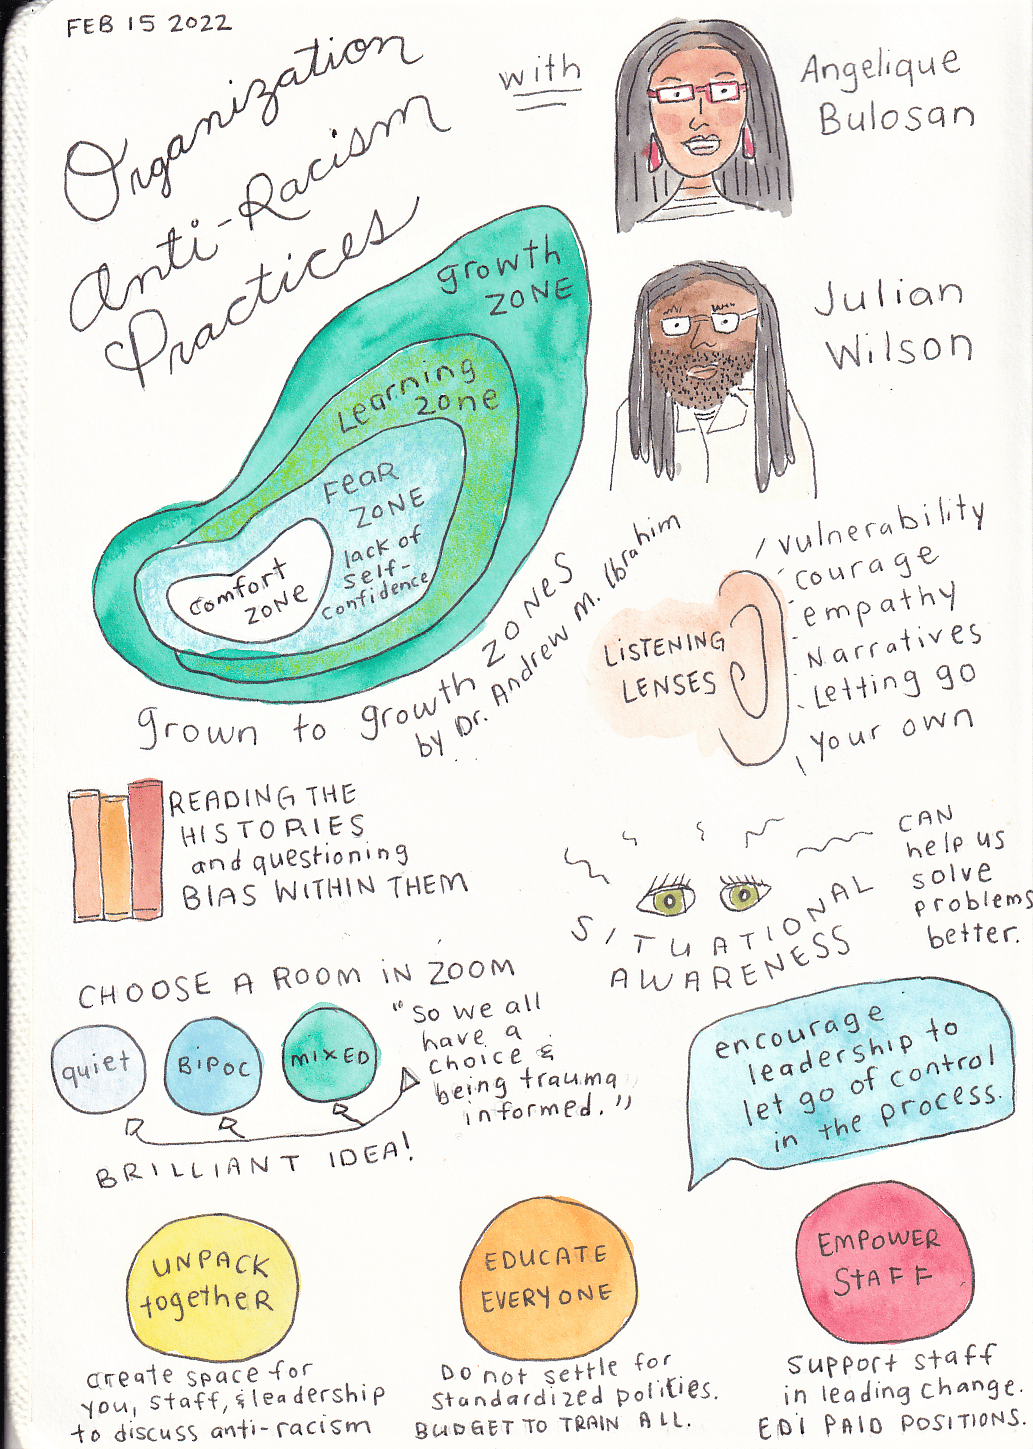 FEB 15 2022
Organization
Anti-Racism
Practices
with
Angelique
Bulosan
Julian
Wilson
growth
ZONE
Learning
zone
Fear
ZONE
lack of
self-
confidence
comfort
ZONE
grown to growth ZONES
by Dr. Andrew M. Ibrahim
LISTENING
LENSES
vulnerability
courage
empathy
Narratives
Letting go
your own
READING THE
HISTORIES
and questioning
BIAS WITHIN THEM
SITUATIONAL
AWARENESS
CAN
help us
solve
problems
better.
CHOOSE A ROOM IN ZOOM
quiet
BIPOC
MIXED
"So we all
have a
choice &
being trauma
informed."
BRILLIANT IDEA!
encourage
leadership to
let go of control
in the process.
UNPACK
together
create space for
you, staff, & leadership
to discuss anti-racism
EDUCATE
EVERYONE
Do not settle for
standardized polities.
BUDGET TO TRAIN ALL.
EMPOWER
STAFF
Support staff
in leading change.
EDI PAID POSITIONS.